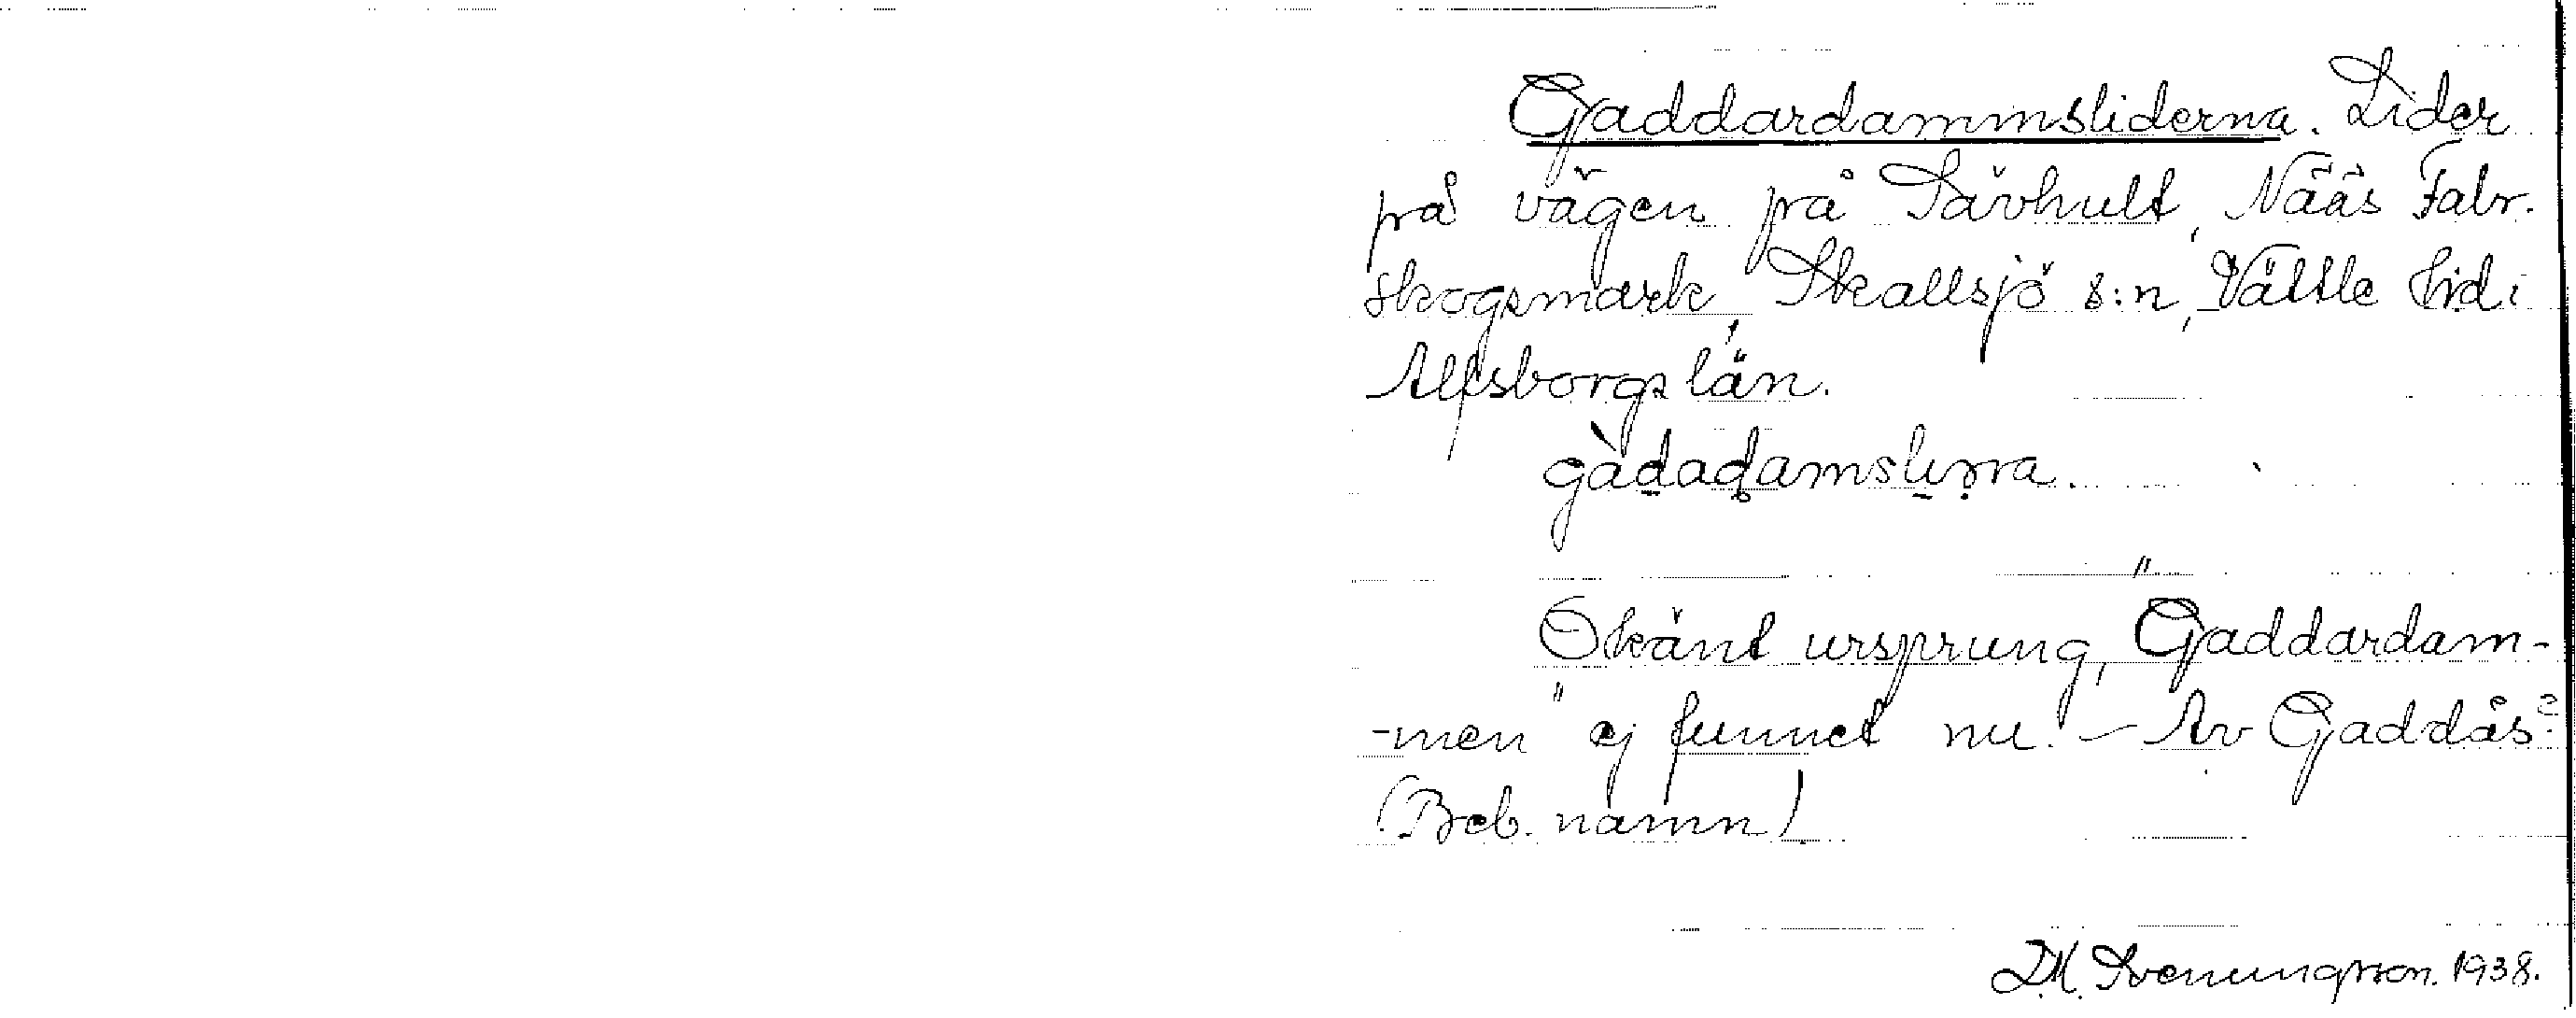 Gaddardammsliderna. Lider
på vägen på Sävhult, Nääs Fabr.
skogsmark, Skallsjö s:n, Vättle hd i
Älfsborgs län.
gàdadamsliṣra.
Okänt ursprung, "Gaddardam-
-men" ej funnet nu. – Av Gaddås?
(Beb. namn)
D.M. Svenungsson. 1938.